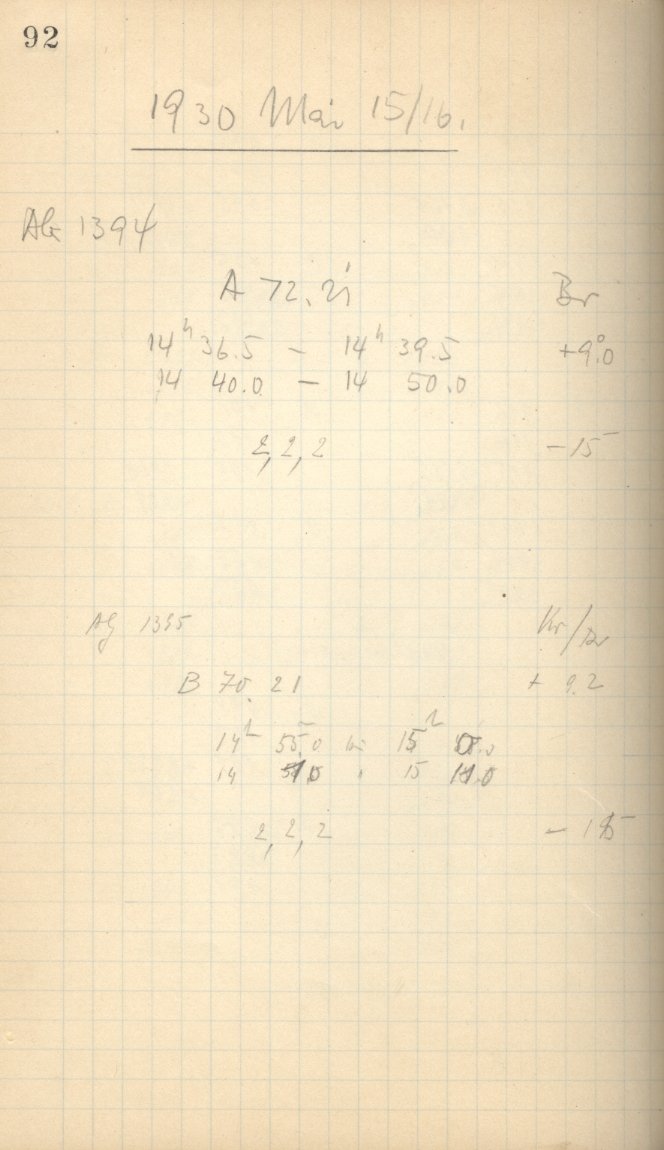 92
1930 Mai 15/16.
AG 1394
A 72.21 Br
14h 36.5 – 14h 39.5 +9°.0
14 40.0 – 14 50.0
2,2,2 –15
AG 1395 Kr/Br
B 70 21 + 9.2
14h 55.0 bis 15h
14 15
2,2,2 – 15